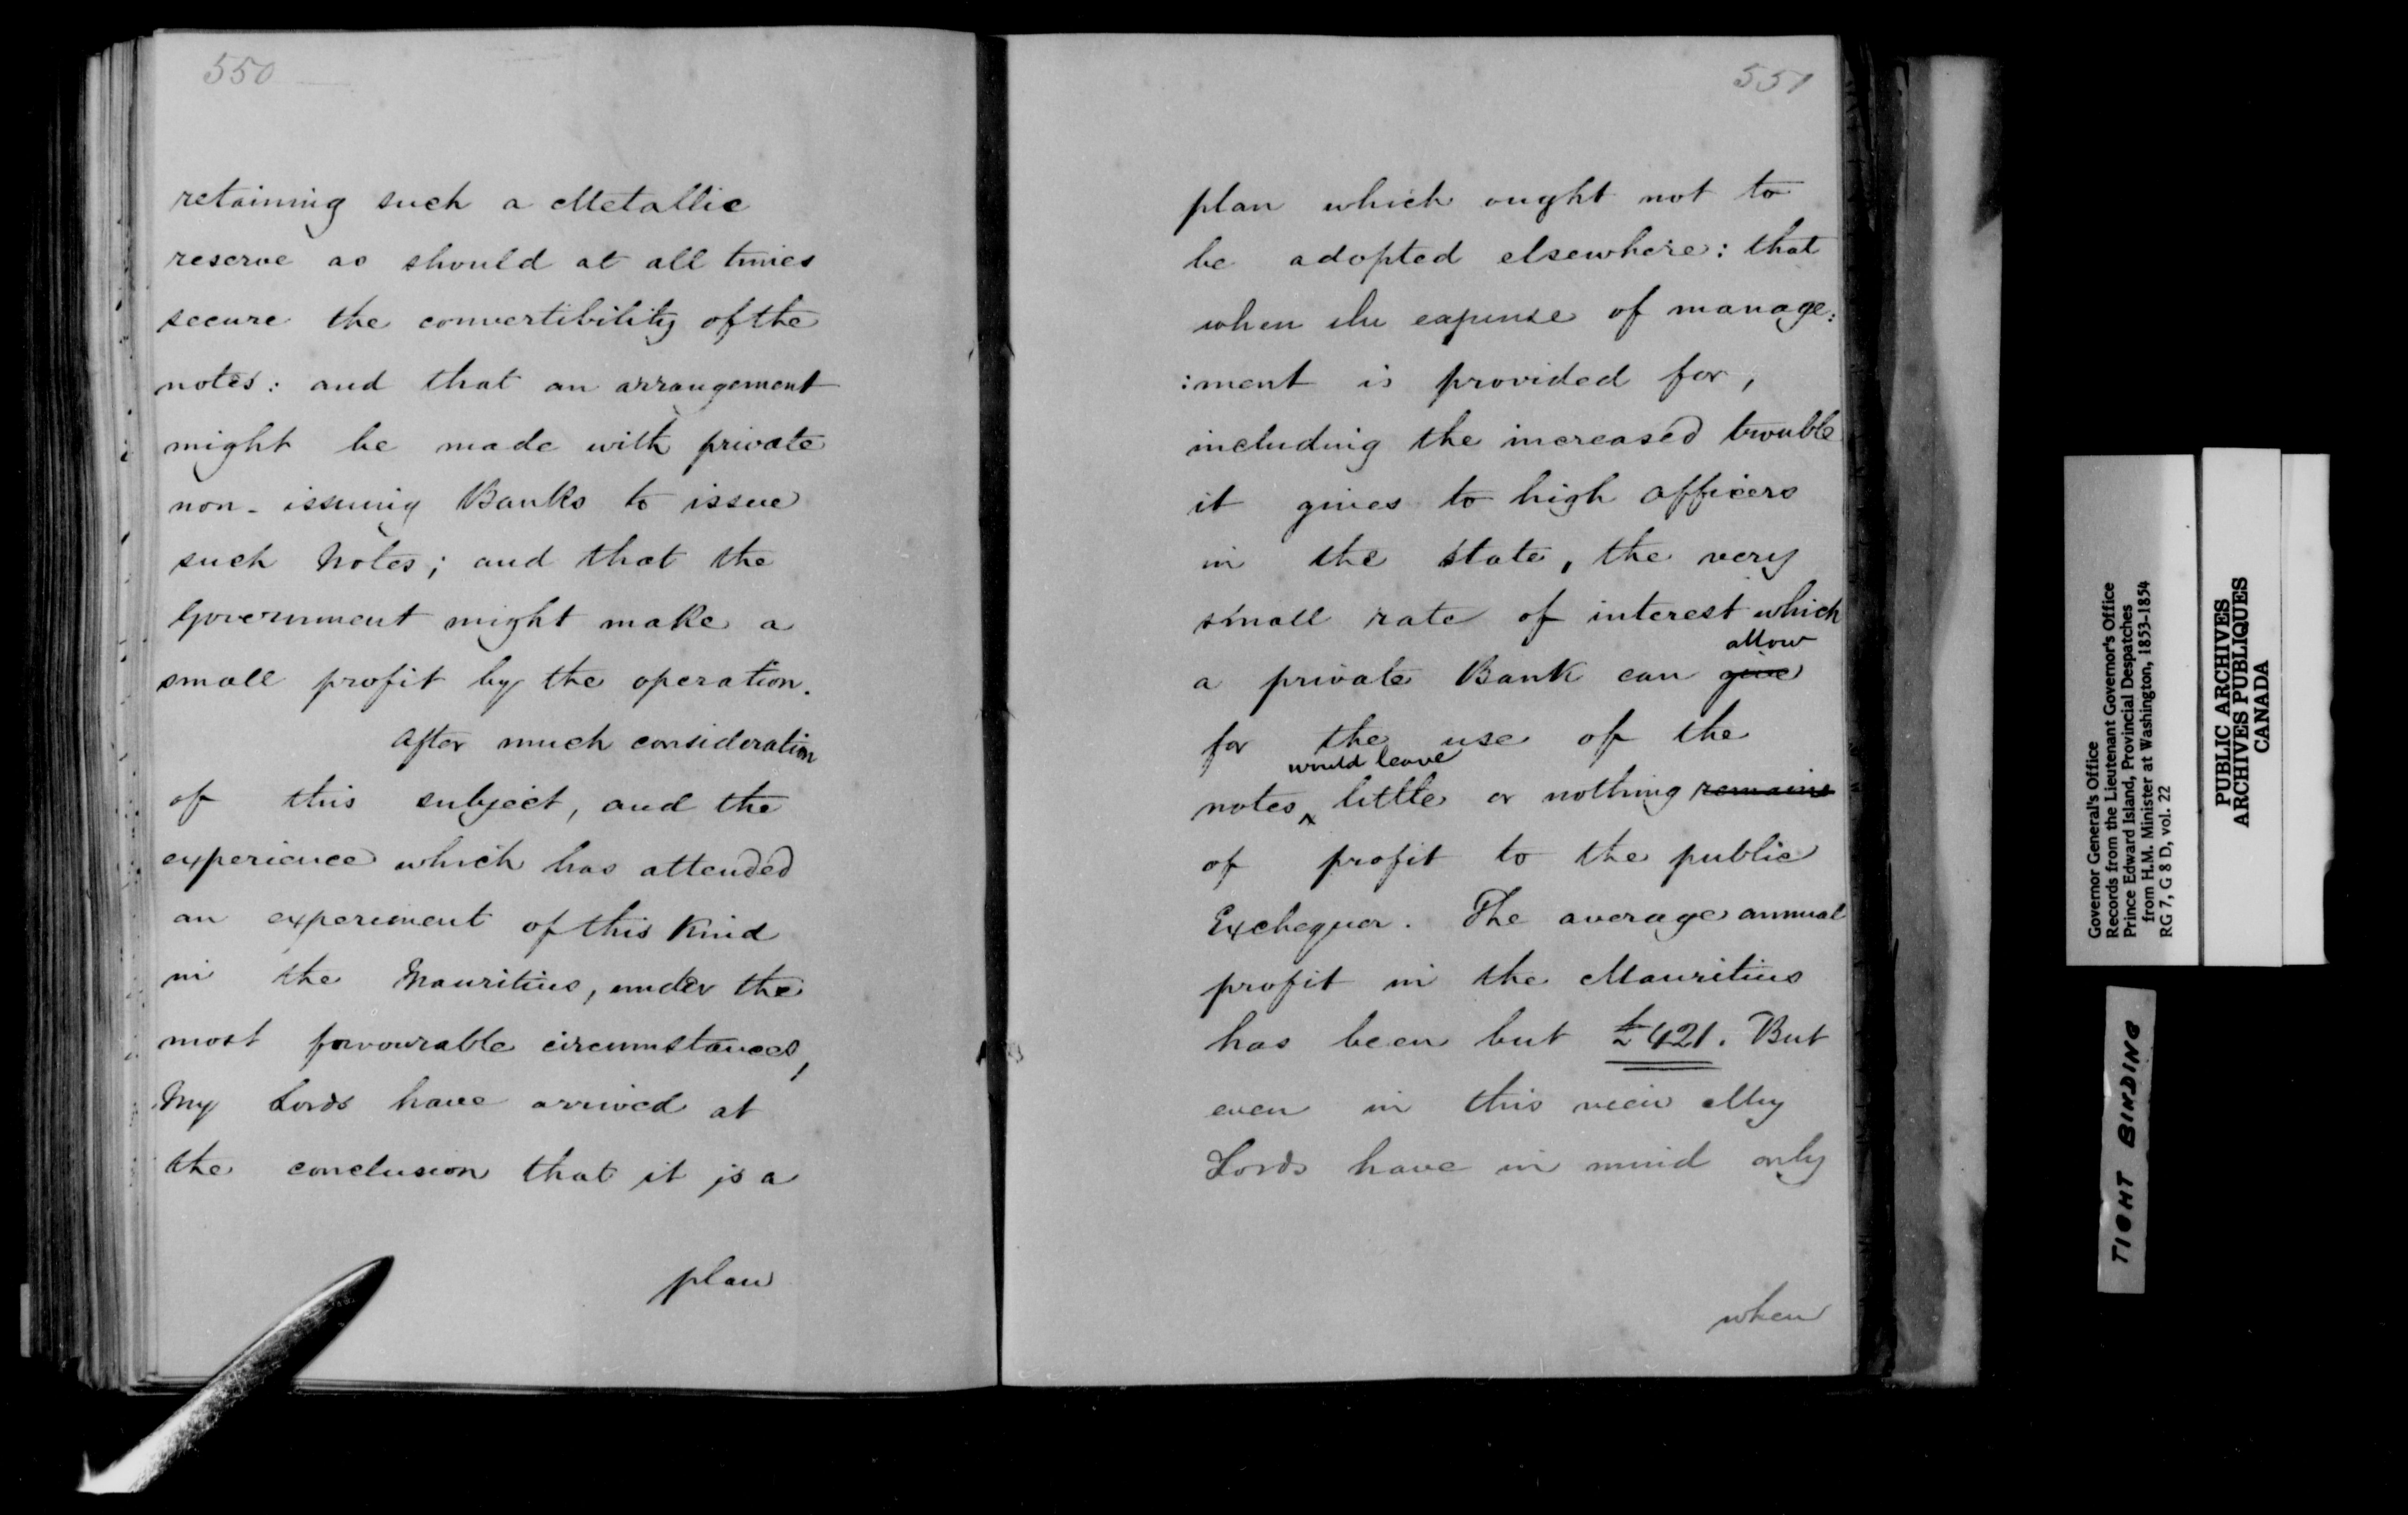 550
retaining such a Metallic
reserve as should at all times
secure the convertibility of the
notes: and that an arrangement
might be made with private
non-issuing Banks to issue
such Notes; and that the
Government might make a
small profit by the operation.
After much consideration
of this subject, and the
experience which has attended
an experiment of this kind
in the Mauritius, under the
most favourable circumstances,
My Lords have arrived at
the conclusion that it is a
plan
551
plan which ought not to
be adopted elsewhere: that
when the expense of manage:
:ment is provided for,
including the increased trouble
it gives to high Officers
in the State, the very
small rate of interest which
allow
a private Bank can give
for the use of the
would leave
notes, little or nothing remains
of profit to the public
Exchequer. The average annual
profit in the Mauritius
has been but £421. But
even in this view My
Lords have in mind only
when
Governor General's Office
Records from the Lieutenant Governor's Office
Prince Edward Island, Provincial Despatches
from H.M. Minister at Washington, 1853-1854
RG 7, G 8 D, vol. 22
PUBLIC ARCHIVES
ARCHIVES PUBLIQUES
CANADA
TIGHT BINDING